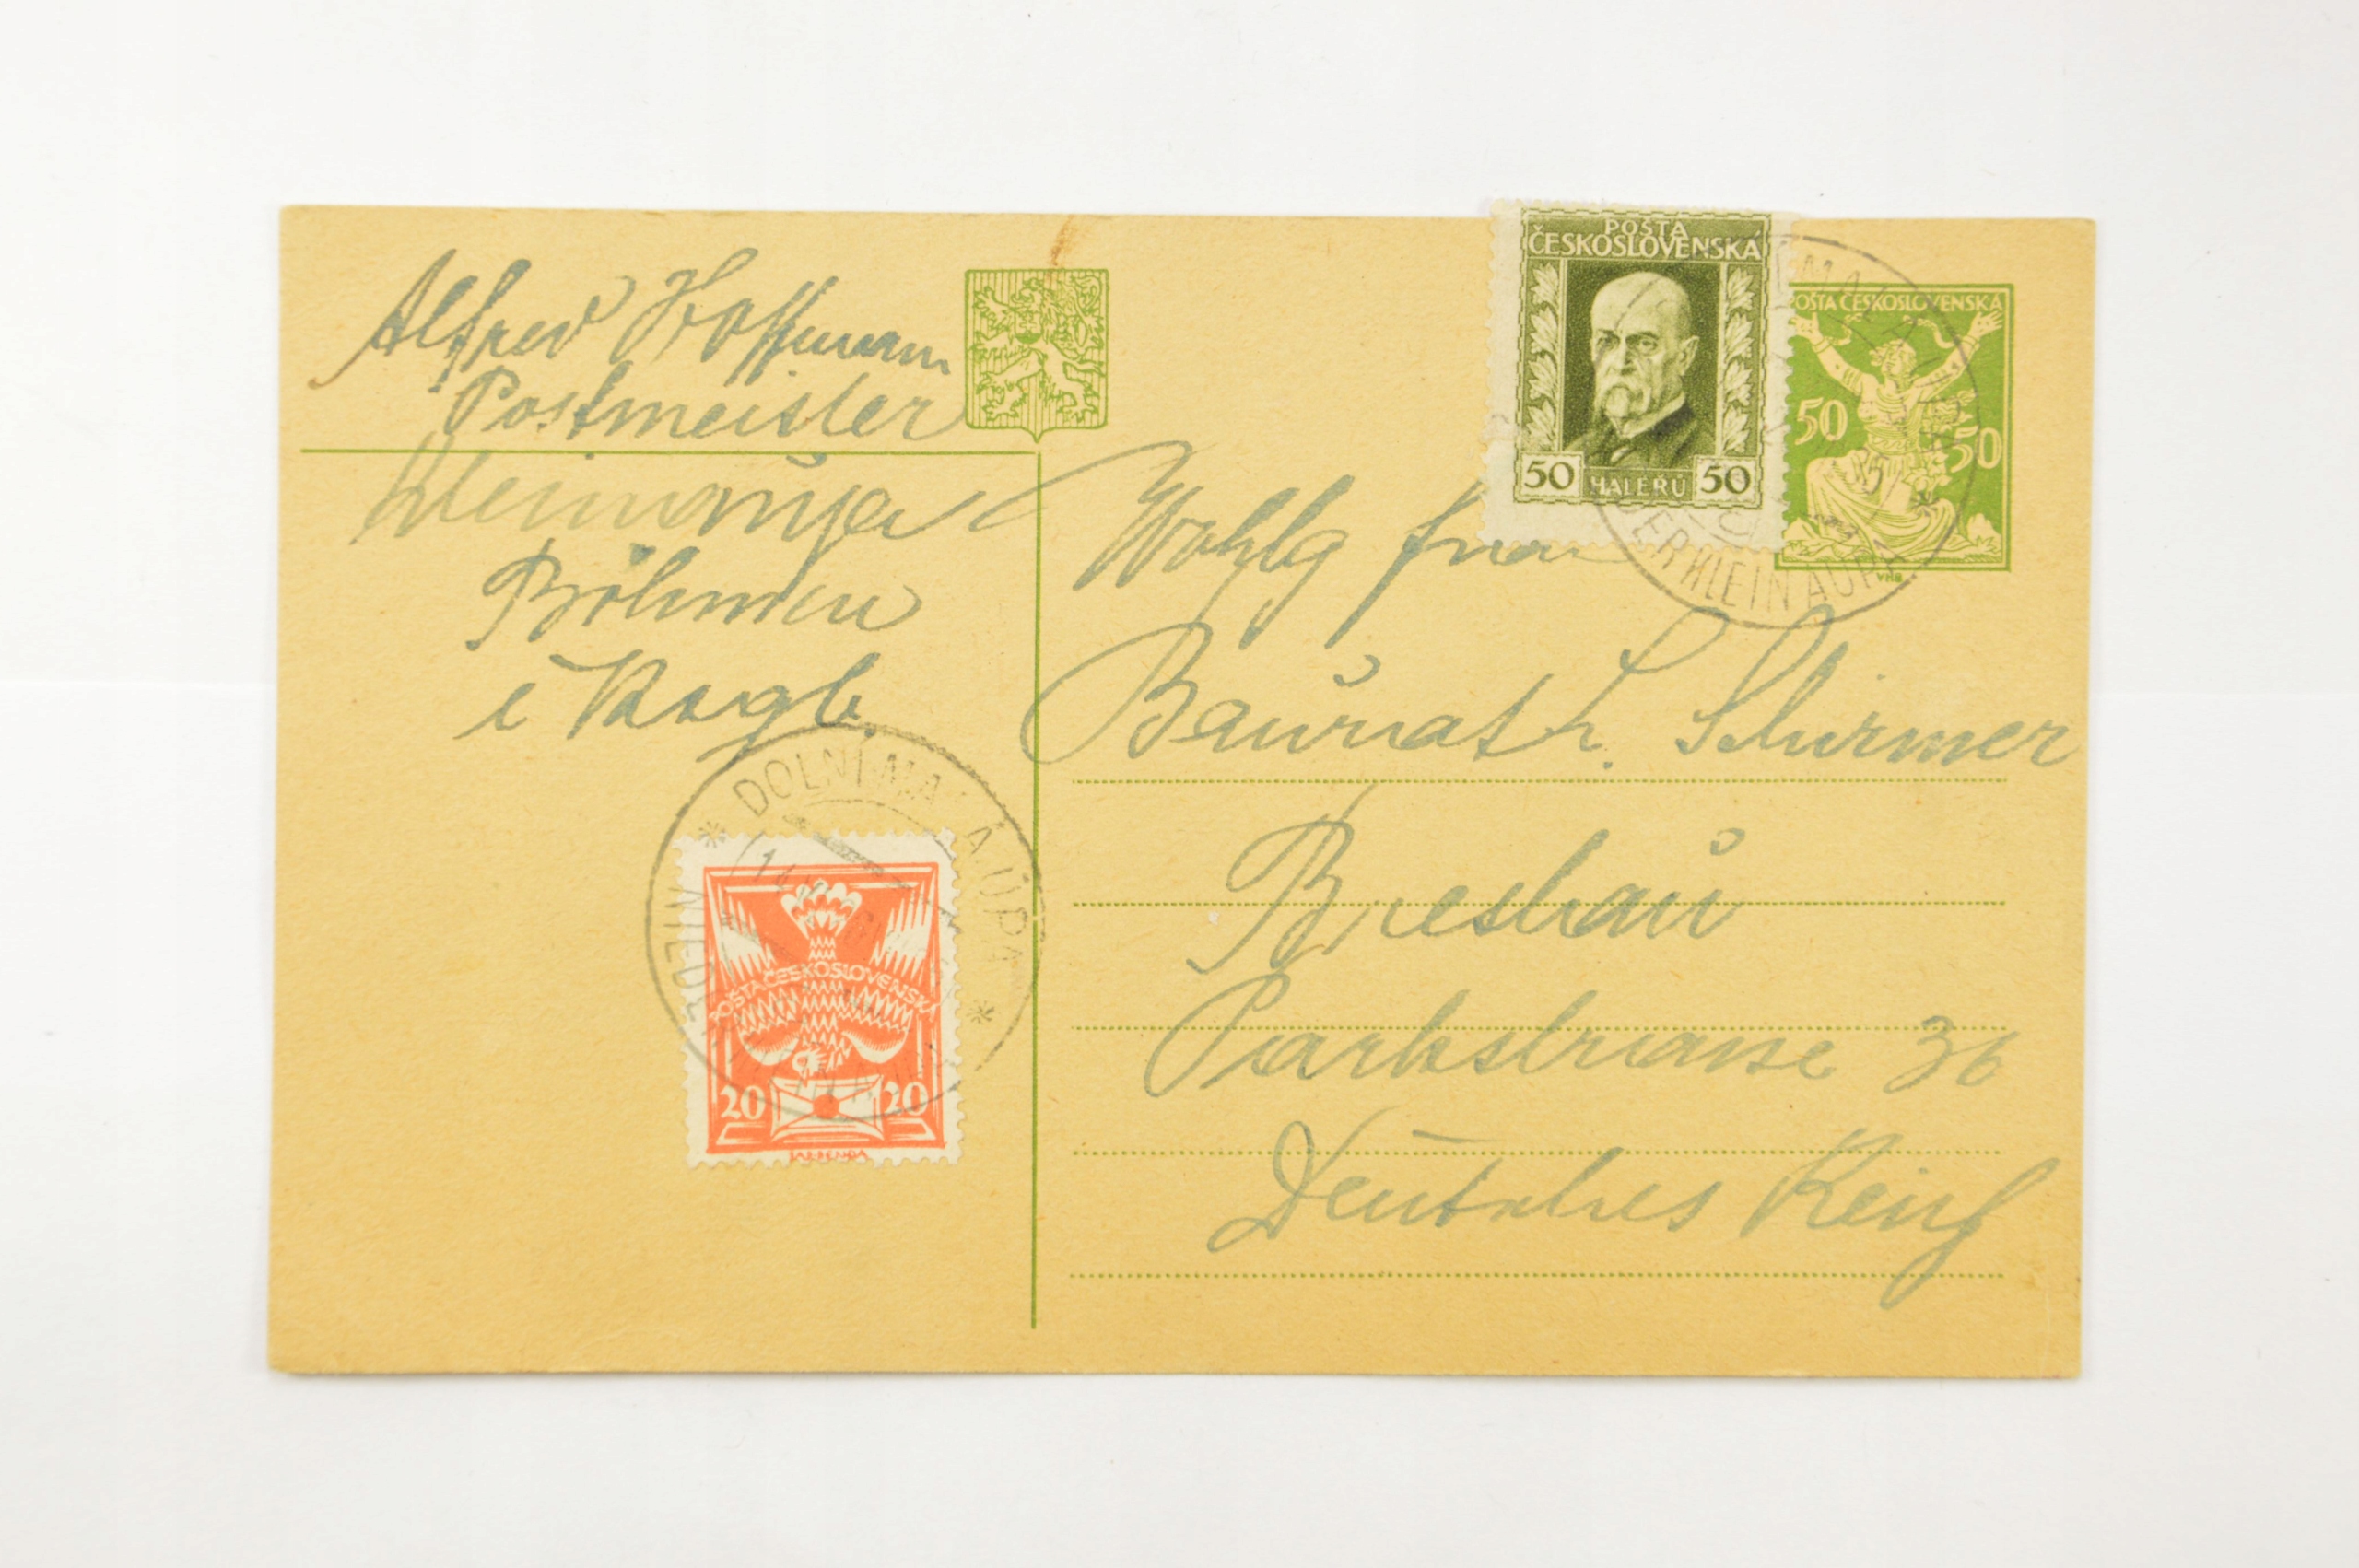 Alfred Hoffmann
Postmeister
Kleinaupa
Böhmen
i Rsgb.
POŠTA
ČESKOSLOVENSKÁ
50 HALÉŘŮ 50
POŠTA ČESKOSLOVENSKÁ
50 50
VHB
MALÁ ÚPA
NIEDER KLEIN AUPA
Wohlg Frau
Baurat h. Schirmer
Breslau
Parkstrasse 36
Deutsches Reich
DOLNÍ MALÁ ÚPA
NIEDER
POŠTA ČESKOSLOVENSKÁ
20 20